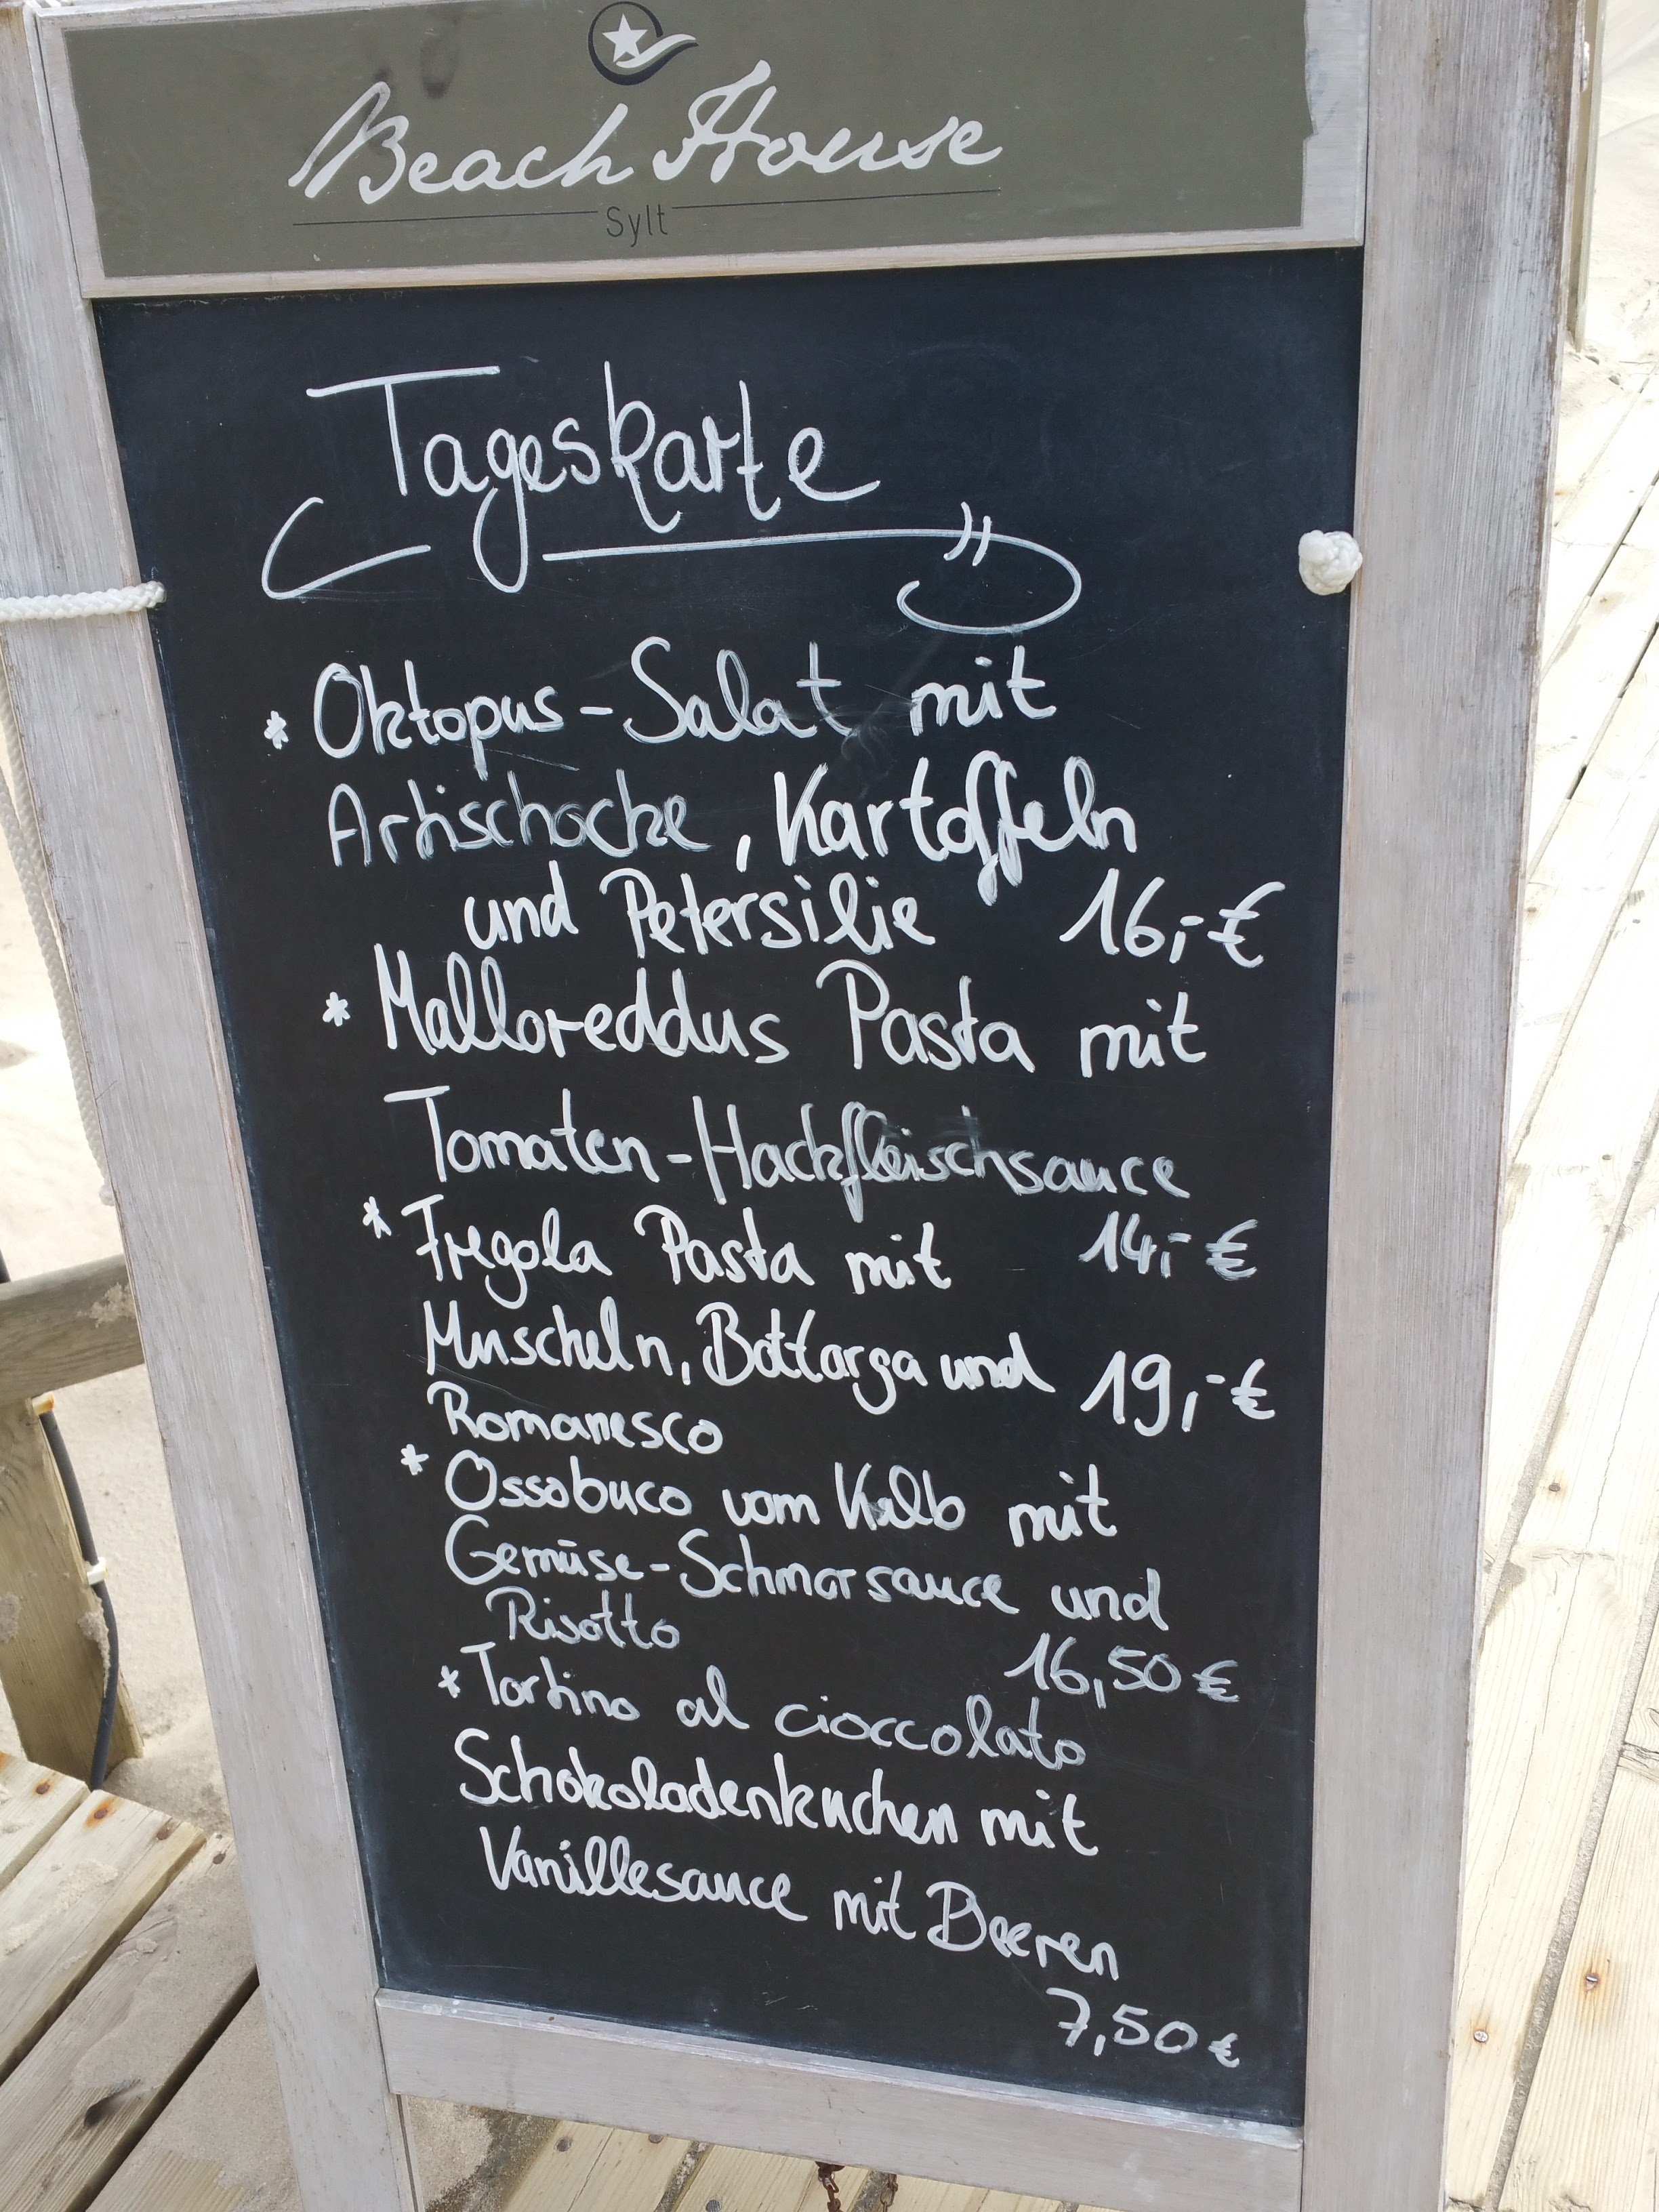 Beach House
Sylt
Tageskarte
* Oktopus-Salat mit
Artischocke, Kartoffeln
und Petersilie 16,-€
* Malloreddus Pasta mit
Tomaten-Hackfleischsauce
14,-€
* Fregola Pasta mit
Muscheln, Bottarga und 19,-€
Romanesco
* Ossobuco vom Kalb mit
Gemüse-Schmorsauce und
Risotto
16,50€
* Tortino al cioccolato
Schokoladenkuchen mit
Vanillesauce mit Beeren
7,50€